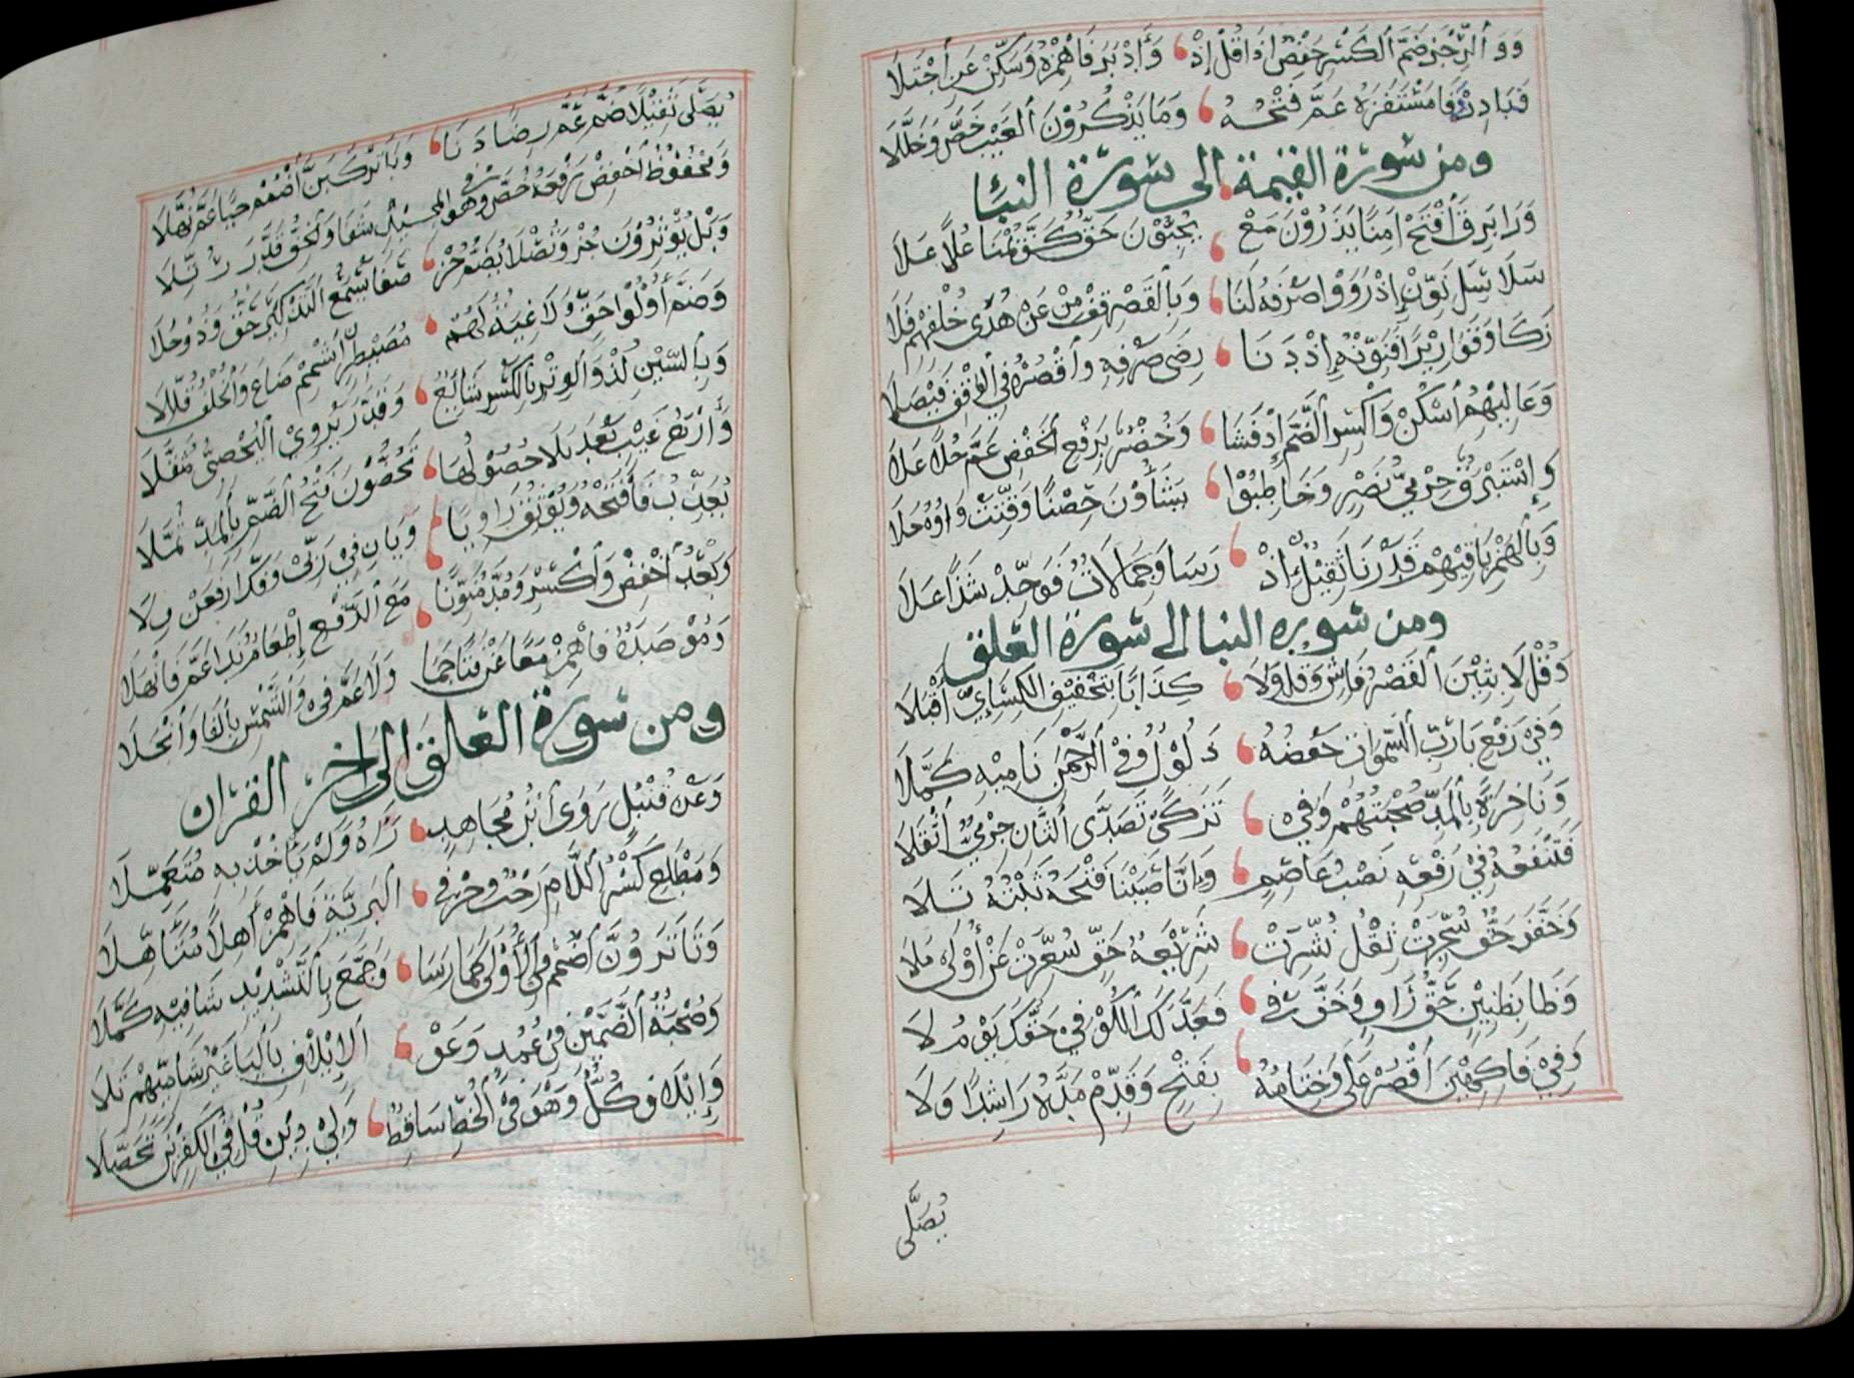 وَوَ ٱلرِّجْزَ ضَمَّ ٱلْكَسْرَ حَفْصٌ إِذَا قُلْ إِذْ وَأَدْبَرَ فَاهْمِزْهُ وَسَكِّنْ عَنِ اجْتَلَا
فَبَادِرْ وَفَا مُسْتَنْفِرَهْ عَمَّ فَتْحُهُ وَمَا يَذْكُرُوْنَ ٱلْغَيْبَ خَصَّ وَخَلَّلَا
ومن سورة القيمة إلى سورة النبا
وَرَا بَرِقَ ٱفْتَحْ اٰمِنًا يَذَرُوْنَ مَعْ يُحِبُّوْنَ حَقٌّ كَفَّ يُمْنَا عُلًا عَلَا
سَلَاسِلَ نَوِّنْ إِذْ رَوَوْا صَرْفَهُ لَنَا وَبِالْقَصْرِ قِفْ مِنْ عَنْ هُدًى خُلْفُهُمْ فَلَا
زَكَا وَقَوَارِيْرًا فَنَوِّنْهُ إِذْ دَنَا رِضَى صَرْفِهِ وَٱقْصُرْهُ فِي ٱلْوَقْفِ فَيْصَلَا
وَعَالِيْهِمُ ٱسْكِنْ وَٱكْسِرِ ٱلضَّمَّ إِذْ فَشَا وَخُضْرٌ بِرَفْعِ ٱلْخَفْضِ عَمَّ حُلًا عَلَا
وَإِسْتَبْرَقٌ حِرْمِيُّ نَصْرٍ وَخَاطِبُوْا يَشَاؤُنَ حِصْنًا وَقِّتَتْ وَاوُهُ حَلَا
وَبِٱلْهَمْزِ بَاقِيْهِمْ قَدَرْنَا ثَقِيْلٌ إِذْ رَسَا وَجِمَالَاتٌ فَوَحِّدْ شَذًا عَلَا
ومن سوره النبا الى سورة العلق
وَقُلْ لَابِثِيْنَ ٱلْقَصْرُ فَاشٍ وَقُلْ وَلَا كِذَابًا بِتَخْفِيْفِ الْكِسَائِيِّ أَقْبَلَا
وَفِيْ رَفْعِ بَا رَبُّ ٱلسَّمٰوَاتِ خَفْضُهُ ذَلُوْلٌ وَفِي ٱلرَّحْمٰنِ نَامِيْهِ كَمَّلَا
وَنَاخِرَةً بِٱلْمَدِّ صُحْبَتُهُمْ وَفِيْ تَزَكّٰى تَصَدّٰى ٱلثَّانِ حِرْمِيٌّ أَثْقَلَا
فَتَنْفَعُهُ فِيْ رَفْعِهِ نَصْبُ عَاصِمٍ وَإِنَّا صَبَبْنَا فَتْحُهُ ثَبْتُهُ تَلَا
وَخَفَّفَ حَقٌّ سُجِّرَتْ ثِقْلُ نُشِّرَتْ شَرِيْعَةُ حَقٍّ سُعِّرَتْ عَنْ أُوْلِى مَلَا
وَظَا بِظَنِيْنٍ حَقُّ رَاوٍ وَخَفَّ فِي فَعَدَّلَكَ ٱلْكُوْفِيْ وَحَقُّكَ يَوْمُ لَا
وَفِيْ فَاكِهِيْنَ ٱقْصُرْ عَلَى وَخِتَامُهُ بِفَتْحٍ وَقَدِّمْ مَدَّهُ رَاشِدًا وَلَا
يُصَلّٰى
يُصَلّٰى ثَقِيْلًا ضُمَّ عَمَّ رِضًا دَنَا وَبَا تَرْكَبَنَّ ٱضْمُمْ حَيًا عَمَّ نُهَّلَا
وَمَحْفُوْظٌ ٱخْفِضْ رَفْعَهُ خُصَّ وَهْوَ فِي الْمَجِيْدِ شَفَا وَٱلْخِفُّ قَدَّرَ رُتِّلَا
وَبَلْ يُؤْثِرُوْنَ حُزْ وَتُصْلٰى يُضَمُّ حُزْ صَفَا يُسْمَعُ ٱلتَّذْكِيْرُ حَقٌّ وَذُوْ جِلَا
وَضَمَّ أُولُوْا حَقٍّ وَلَاغِيَةٌ لَهُمْ مُصَيْطِرٍ ٱشْمِمْ ضَاعَ وَٱلْخُلْفُ قُلِّلَا
وَبِٱلسِّيْنِ لُذْ وَٱلْوِتْرِ بِٱلْكَسْرِ شَائِعٌ فَقَدَّرَ يَرْوِيْ ٱلْيَحْصَبِيُّ مُثَقَّلَا
وَأَرْبَعُ غَيْبٍ بَعْدَ بَلْ لَا حُصُوْلُهَا تَحُضُّوْنَ فَتْحُ ٱلضَّمِّ بِٱلْمَدِّ ثُمِّلَا
يُعَذِّبُ فَٱفْتَحْهُ وَيُوْثِقُ رَاوِيًا وَيَاءَانِ فِيْ رَبِّيْ وَفَكُّ ٱرْفَعَنْ وِلَا
وَبَعْدُ ٱخْفِضْ وَٱكْسِرْ وَمُدَّ مُنَوِّنًا مَعَ ٱلرَّفْعِ إِطْعَامٌ نَدًا عَمَّ فَانْهَلَا
وَمُؤْصَدَةٌ فَاهْمِزْ مَعًا عَنْ فَتًى حِمًا وَلَا عَمَّ فِي وَٱلشَّمْسِ بِٱلْفَا وَٱنْجَلَا
ومن سورة العلق إلى اٰخر ٱلقرٰان
وَعَنْ قُنْبُلٍ رَوٰى ٱبْنُ مُجَاهِدٍ رَاٰهُ وَلَمْ يَأْخُذْ بِهِ مُتَعَمِّلَا
وَمَطْلَعِ كَسْرُ ٱللَّامِ رَحْبٌ وَحَرْفَيِ ٱلْبَرِيَّةِ فَاهْمِزْ اٰهِلًا مُتَأَهِّلَا
وَتَا تَرَوُنَّ ٱضْمُمْ فِي ٱلْأُوْلٰى كَمَا رَسَا وَجَمَّعَ بِٱلتَّشْدِيْدِ شَافِيْهِ كَمَّلَا
وَصُحْبَةُ ٱلضَّمَّيْنِ فِيْ عُمُدٍ وَعَوْا لِإِيْلَافِ بِٱلْيَا غَيْرُ شَامِيِّهِمْ تَلَا
وَإِيْلَافِ كُلٌّ وَهْوَ فِي ٱلْخَطِّ سَاقِطٌ وَلِيْ دِيْنِ قُلْ فِي ٱلْكَافِرِيْنَ تَحَصَّلَا